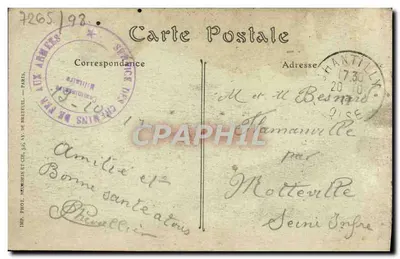 7265/92
Carte Postale
Correspondance
Adresse
SERVICE DES CHEMINS DE FER AUX ARMÉES
Militaire
CHANTILLY
17.30
20
OISE
19-10
17
M et M Besnard
Flamanville
par
Motteville
Seine Infre
Amitié et
Bonne santé a tous
PChevallier
CPHAPHIL
IMP. PHOT.
PARIS.